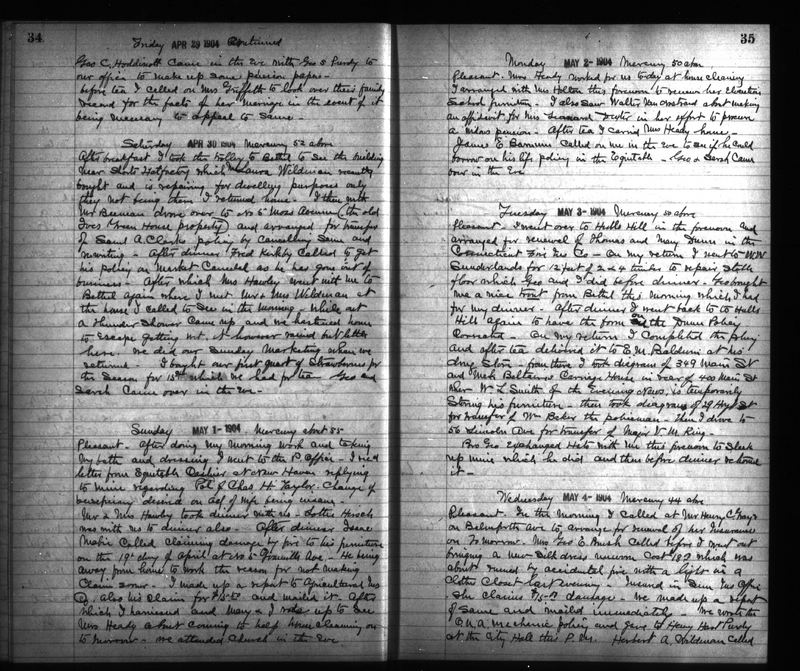 34
Friday APR 29 1904 Continued
Geo C. Hoddinott Came in the Eve with Geo S Purdy to
our office to make up some pension papers-
before tea I called on Mrs Griffith to look over their family
record for the facts of her marriage in the event of it
being necessary to appeal to Same -
Saturday APR 30 1904 Mercury 52 above
After breakfast I took the trolley to Bethel to See the building
near Hatfactory which Laura Wildman recently
bought and is repairing for dwelling purposes only
they not being there I returned home. I then with
Mr Beeman drove over to No 5 Moss Avenue (the old
Ives Green House property) and arranged for transfer
of Saml A. Clarks policy by Cancelling Same and
rewriting - After dinner Fred Kirkby Called to get
his policy on Market Canceled as he has gone out of
business - After which Mrs Hawley went with me to
Bethel again where I met Mr & Mrs Wildman at
the house I called to See in the morning - While out
a thunder Shower Came up and we hastened home
to escape getting wet, it however rained but little
here. We did our Sunday Marketing when we
returned. I bought our first quart of Strawberries for
the Season for 15¢ which we had for tea - Geo and
Sarah Came over in the Eve -
Sunday MAY 1- 1904 Mercury about 55
Pleasant. After doing my morning work and taking
my bath and dressing I went to the P. Office - I recd
letter from Equitable Cashier at New Haven replying
to mine regarding Pol of Chas H Taylor. Change of
beneficiary desired on act of wife being insane
Mr & Mrs Hawley took dinner with us - Lottie
was with us to dinner also. After dinner Isaac
Called claiming damage by fire to his furniture
on the 19th day of April at No 5 Granville Ave - He being
away from home to work the reason for not making
Claim sooner - I made up a report to Agricultural Ins
Co. also his Claim for $15 and mailed it. After
which I harnessed and Mary & I rode up to See
Mrs Heady about coming to help house cleaning on
to morrow - We attended Church in the Eve
35
Monday MAY 2- 1904 Mercury 50 above
Pleasant. Mrs Heady worked for us today at house cleaning
I arranged with Mrs Hilton this forenoon to renew her
School furniture. I also Saw Walter about making
an affidavit for Mrs Leonard in her effort to procure
a pension - After tea I carried Mrs Heady home -
James E. Barnum Called on me in the Eve to see if he could
borrow on his life policy in the Equitable - Geo & Sarah Came
over in the Eve
Tuesday MAY 3- 1904 Mercury 50 above
Pleasant. I went over to Hulls Hill in the forenoon and
arranged for renewal of Thomas and Mary Dunn in the
Connecticut Fire Ins Co - On my return I went to WW
Sunderlands for 12 feet of 2 x 4 timber to repair Stable
floor which Geo and I did before dinner. Geo bought
me a nice trout from Bethel this morning which I had
for my dinner. After dinner I went back to Hulls
Hill again to have the form on the Dunn Policy
Corrected - On my return I Completed the policy
and after tea delivered it to E. M. Baldwin at his
drug Store - from there I took diagram of 349 Main St
and Carriage House in rear of 400 Main St
W. L. Smith of the Evening News, is temporarily
Storing his furniture - then took diagram of 29 St
for transfer of Wm Baker the policeman - then I drove to
56 Lincoln Ave for transfer of V. M. King -
Bro Geo exchanged Hats with me this forenoon to
up mine which he did and then before dinner returned
it -
Wednesday MAY 4- 1904 Mercury 44 above
Pleasant. In the morning I Called at Mr Henry C. Grays
on Ave to arrange for renewal of her Insurance
on Tomorrow. Mrs Geo E. Called before I went out
bringing a new Silk dress Cost $18 which was
about ruined by accidental fire with a light in a
Clothes Closet last evening - Insured in Sun Ins Office
She claims $15 damage - We made up a report
of Same and mailed immediately - We wrote the
mechanic policy and gave to Henry Purdy
at the City Hall this P.M. Herbert A. Wildman Called